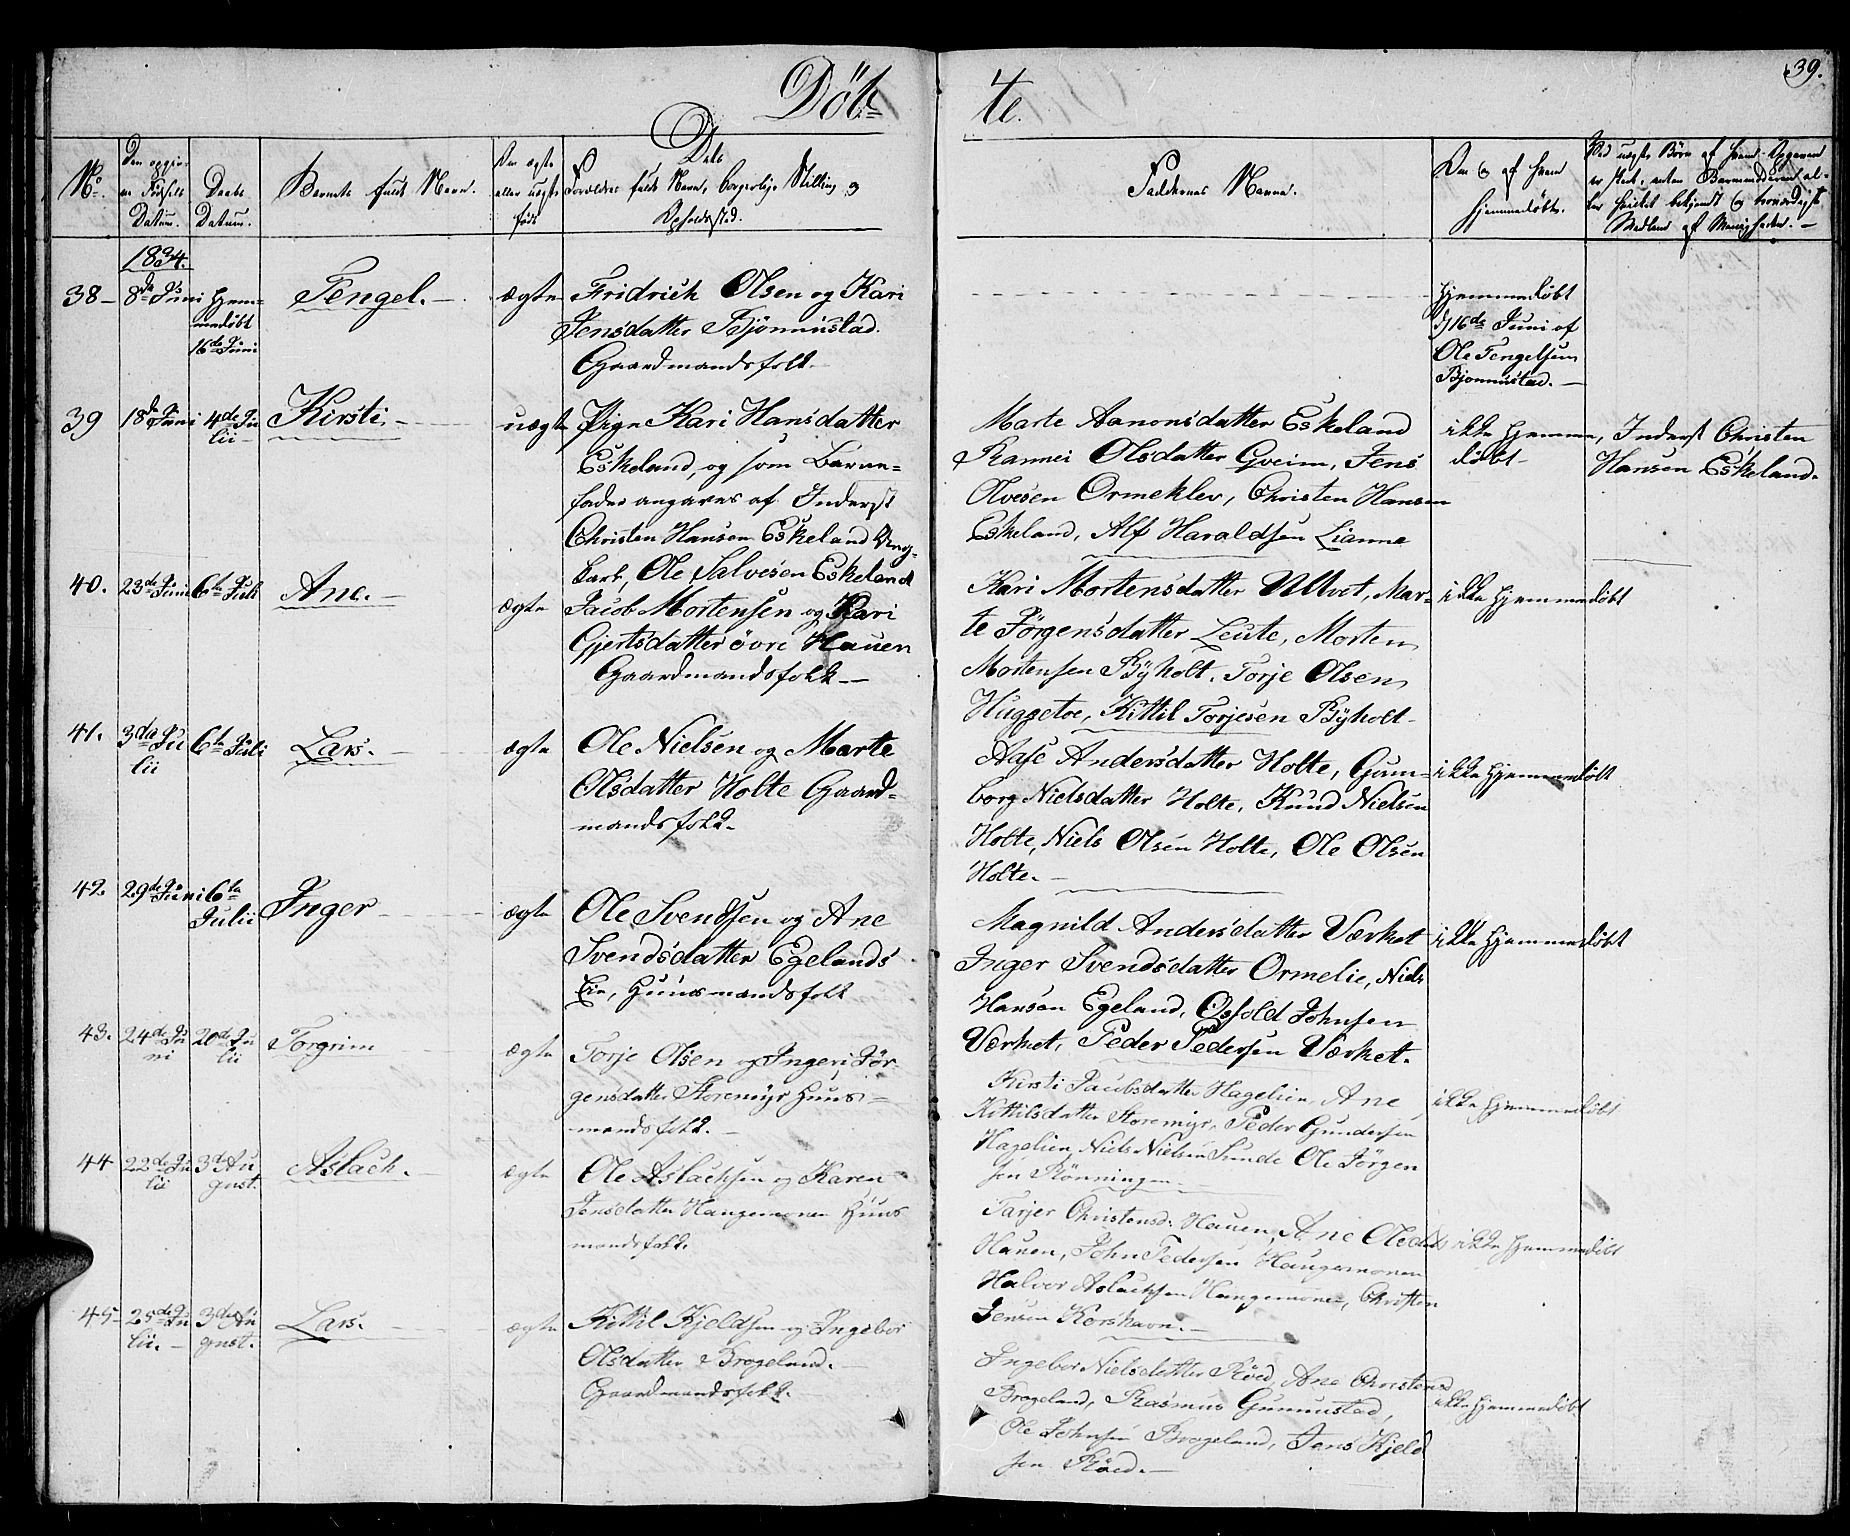 39.
Döb= te.
No.
Den opgivne Födsels Datum.
Daabs Datum.
Barnets fulde Navn.
Om ægte eller uægte født
Dets
Forældres fulde Navn, borgerlige Stilling og
Opholdssted.
Faddernes Navne.
Om og af hvem
hjemmedöbt.
1834.
38 –
8de Juni
Hjem-
medöbt
16de Juni
Tengel.
ægte
Fridrich Olsen og Kari
Jensdatter Bjönnustad.
Gaardmandsfolk.
Hjemmedöbt
d 16de Juni af
Ole Tengelsen
Bjönnustad. –
39
18de Juni
4de Ju
lii –
Kirsti. –
uægte
Pige Kari Hansdatter
Eskeland, og som Barne=
fader angaves af Inderst
Christen Hansen Eskeland Ung-
karl, Ole Salvesen Eskeland
Marte Aanonsdatter Eskeland
Rannei Olsdatter Gveim, Jens
Olvesen Ormeklev, Christen Hansen
Eskeland, Alf Haraldsen Lianne
ikke hjemme,
döbt –
Inderst Christen
Hansen Eskeland.
40.
23de Juni
6te Juli
Ane. –
ægte
Jacob Mortensen og Kari
Gjertsdatter övre Hauen
Gaardmandsfolk –
Kari Mortensdatter Ulvet, Mar-
te Jörgensdatter Leute, Morten
Mortensen Byholt, Torje Olsen
Huggetoe, Kittil Torjesen Byholt –
ikke hjemmedöbt
41.
3die Ju
lii
6te Juli
Lars. –
ægte
Ole Nielsen og Marte
Olsdatter Holte Gaard=
mandsfolk.
Aase Andersdatter Holte, Gun=
borg Nielsdatter Holte, Knud Nielsen
Holte, Niels Olsen Holte, Ole Olsen
Holte. –
ikke hjemmedöbt
42.
29de Juni
6te
Julii
Inger
ægte
Ole Svendsen og Ane
Svendsdatter Egelands
Lie, Huusmandsfolk
Magnild Andersdatter Værket
Inger Svendsdatter Ormelie, Niels
Hansen Egeland, Osfold Johnsen
Værket, Peder Pedersen Værket.
ikke hjemmedöbt
43.
24de Ju
ni
20de Ju
lii
Torgrim
ægte
Torje Olsen og Ingeri Jör-
gensdatter Storemyr Huus=
mandsfolk. –
Kirsti Jacobsdatter Hagelien, Ane
Kittilsdatter Storemyr, Peder Gundersen
Hagelien, Niels Nielsen Sunde Ole Jörgen
sen Rönningen. –
ikke hjemmedöbt
44
22de Ju
lii
3die Au
gust.
Aslach.
ægte
Ole Aslachsen og Karen
Jensdatter Haugemonen Huus
mandsfolk.
Tarjer Christensd. Hauen, Ane Olsdat
Hauen, John Pedersen Haugemonen
Halvor Aslachsen Haugemonen, Christen
Jensen Korshavn. –
ikke hjemmedöbt
45 –
25de Ju
lii. –
3die Au
gust.
Lars. –
ægte
Kittil Kjeldsen og Ingebor
Olsdatter Brogeland. –
Gaardmandsfolk.
Ingebor Nielsdatter Röed, Ane Christens
Brogeland, Rasmus Gunnustad,
Ole Johnsen Brogeland, Jens Kjeld
sen Röed. –
ikke hjemmedöbt